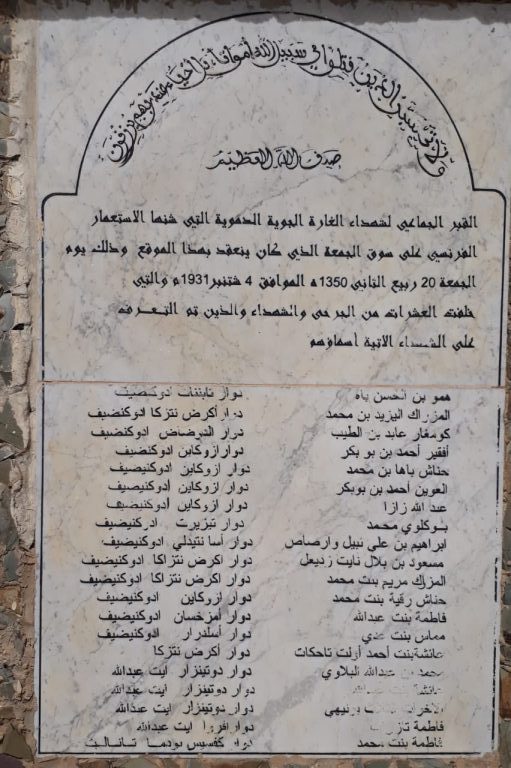 ولا تحسبن الذين قتلوا في سبيل الله أمواتا بل أحياء عند ربهم يرزقون
صدق الله العظيم
القبر الجماعي لشهداء الغارة الجوية الدموية التي شنها الاستعمار
الفرنسي على سوق الجمعة الذي كان ينعقد بهذا الموقع وذلك يوم
الجمعة 20 ربيع الثاني 1350ه الموافق 4 شتنبر1931م والتي
خلفت العشرات من الجرحى والشهداء والذين تم التعرف
على الشهداء الاتية أسماؤهم
همو بن الحسن ياه دوار ادوكنضيف
المزراك اليزيد بن محمد دوار أكرض نتزكا ادوكنضيف
كومغار عابد بن الطيب دوار الدرضاض ادوكنضيف
أفقير أحمد بن بو بكر دوار ازوكاين ادوكنضيف
حناش باها بن محمد دوار ازوكاين ادوكنيضيف
العوين أحمد بن بوبكر دوار ازوكاين ادوكنيصيف
عبد الله زازا دوار ازوكاين ادوكنيضيف
بوكلوي محمد دوار تيزيرت ادركنيضيف
ابراهيم بن علي نبيل وارصاص دوار أسا نتيدلي ادوكنضيف
مسعود بن بلال نايت زديعل دوار اكرض نتزاكا ادوكنيضيف
المزراك مريم بنت محمد دوار اكرض نتزاكا ادوكنيضيف
حناش رقية بنت محمد دوار ازوركاين ادوكنيضيف
فاطمة بنت عبدالله دوار أمزخسان ادوكنيضيف
مماس بنت عدي دوار أسلدرار ادوكنيضيف
عائشةبنت أحمد أولت تاحكات دوار أكرض نتزكا
محمد بن عبدالله البلاوي دوار دوتينزار ايت عبدالله
عائشة بنت عبدالله دوار دوتينزار ايت عبدالله
برنيهي دوار دوتينزار ايت عبدالله
فاطمة دوار أفرزا ايت عبدالله
فاطمة بنت محمد دوار بودما تانالت